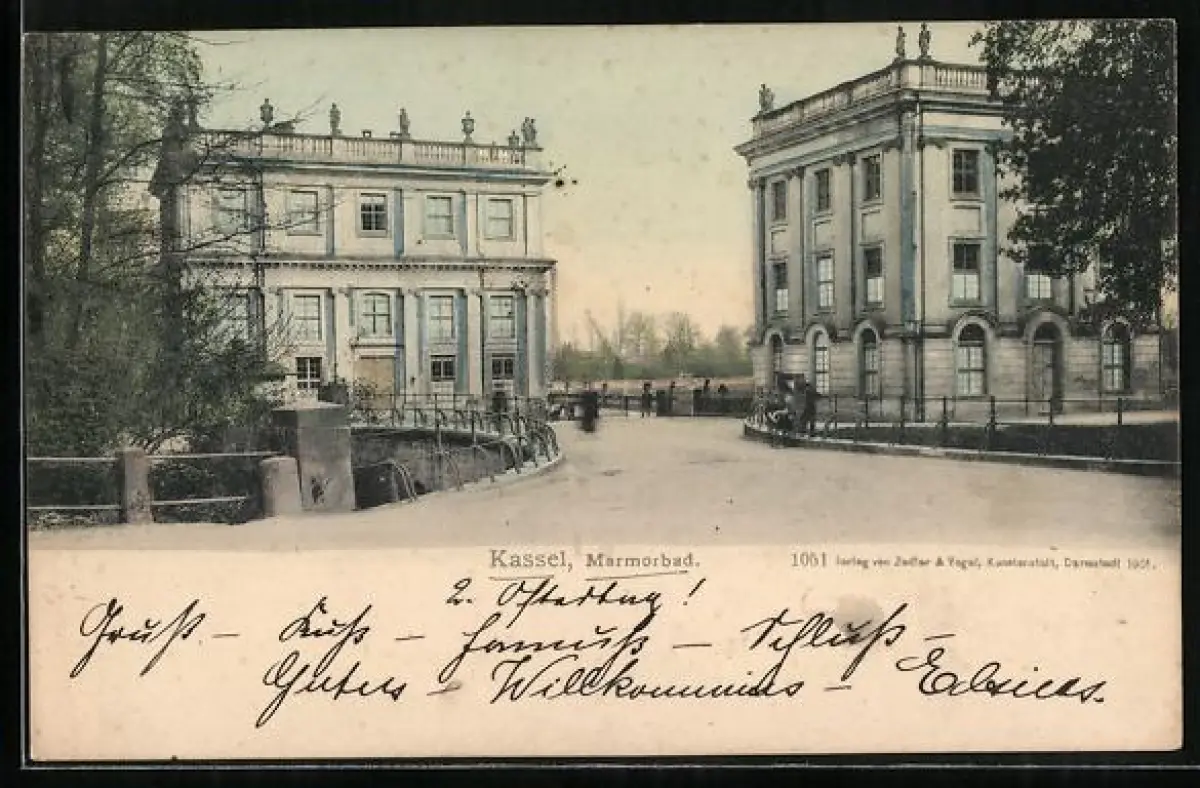 Kassel, Marmorbad.
1051 Verlag von Zedler & Vogel, Kunstanstalt, Darmstadt 1901.
2. Ostertag!
Gruß – Kuß – – Schluß –
Gutes – Willkommnis –